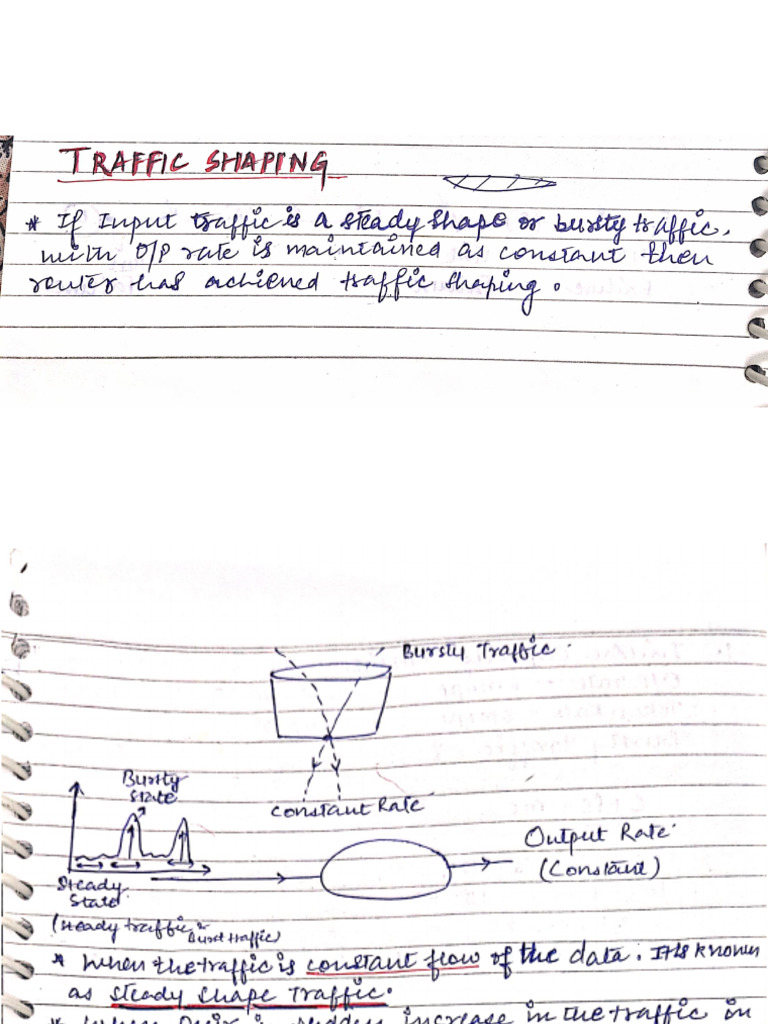 TRAFFIC SHAPING
* If Input traffic is a steady shape or bursty traffic,
with O/P rate is maintained as constant then
router has achieved traffic shaping.
Bursty Traffic.
Bursty
State
Constant Rate
Output Rate.
(Constant)
Steady
State
(steady traffic or
Burst traffic)
* When the traffic is constant flow of the data. It is known
as steady shape Traffic.
increase in the traffic in